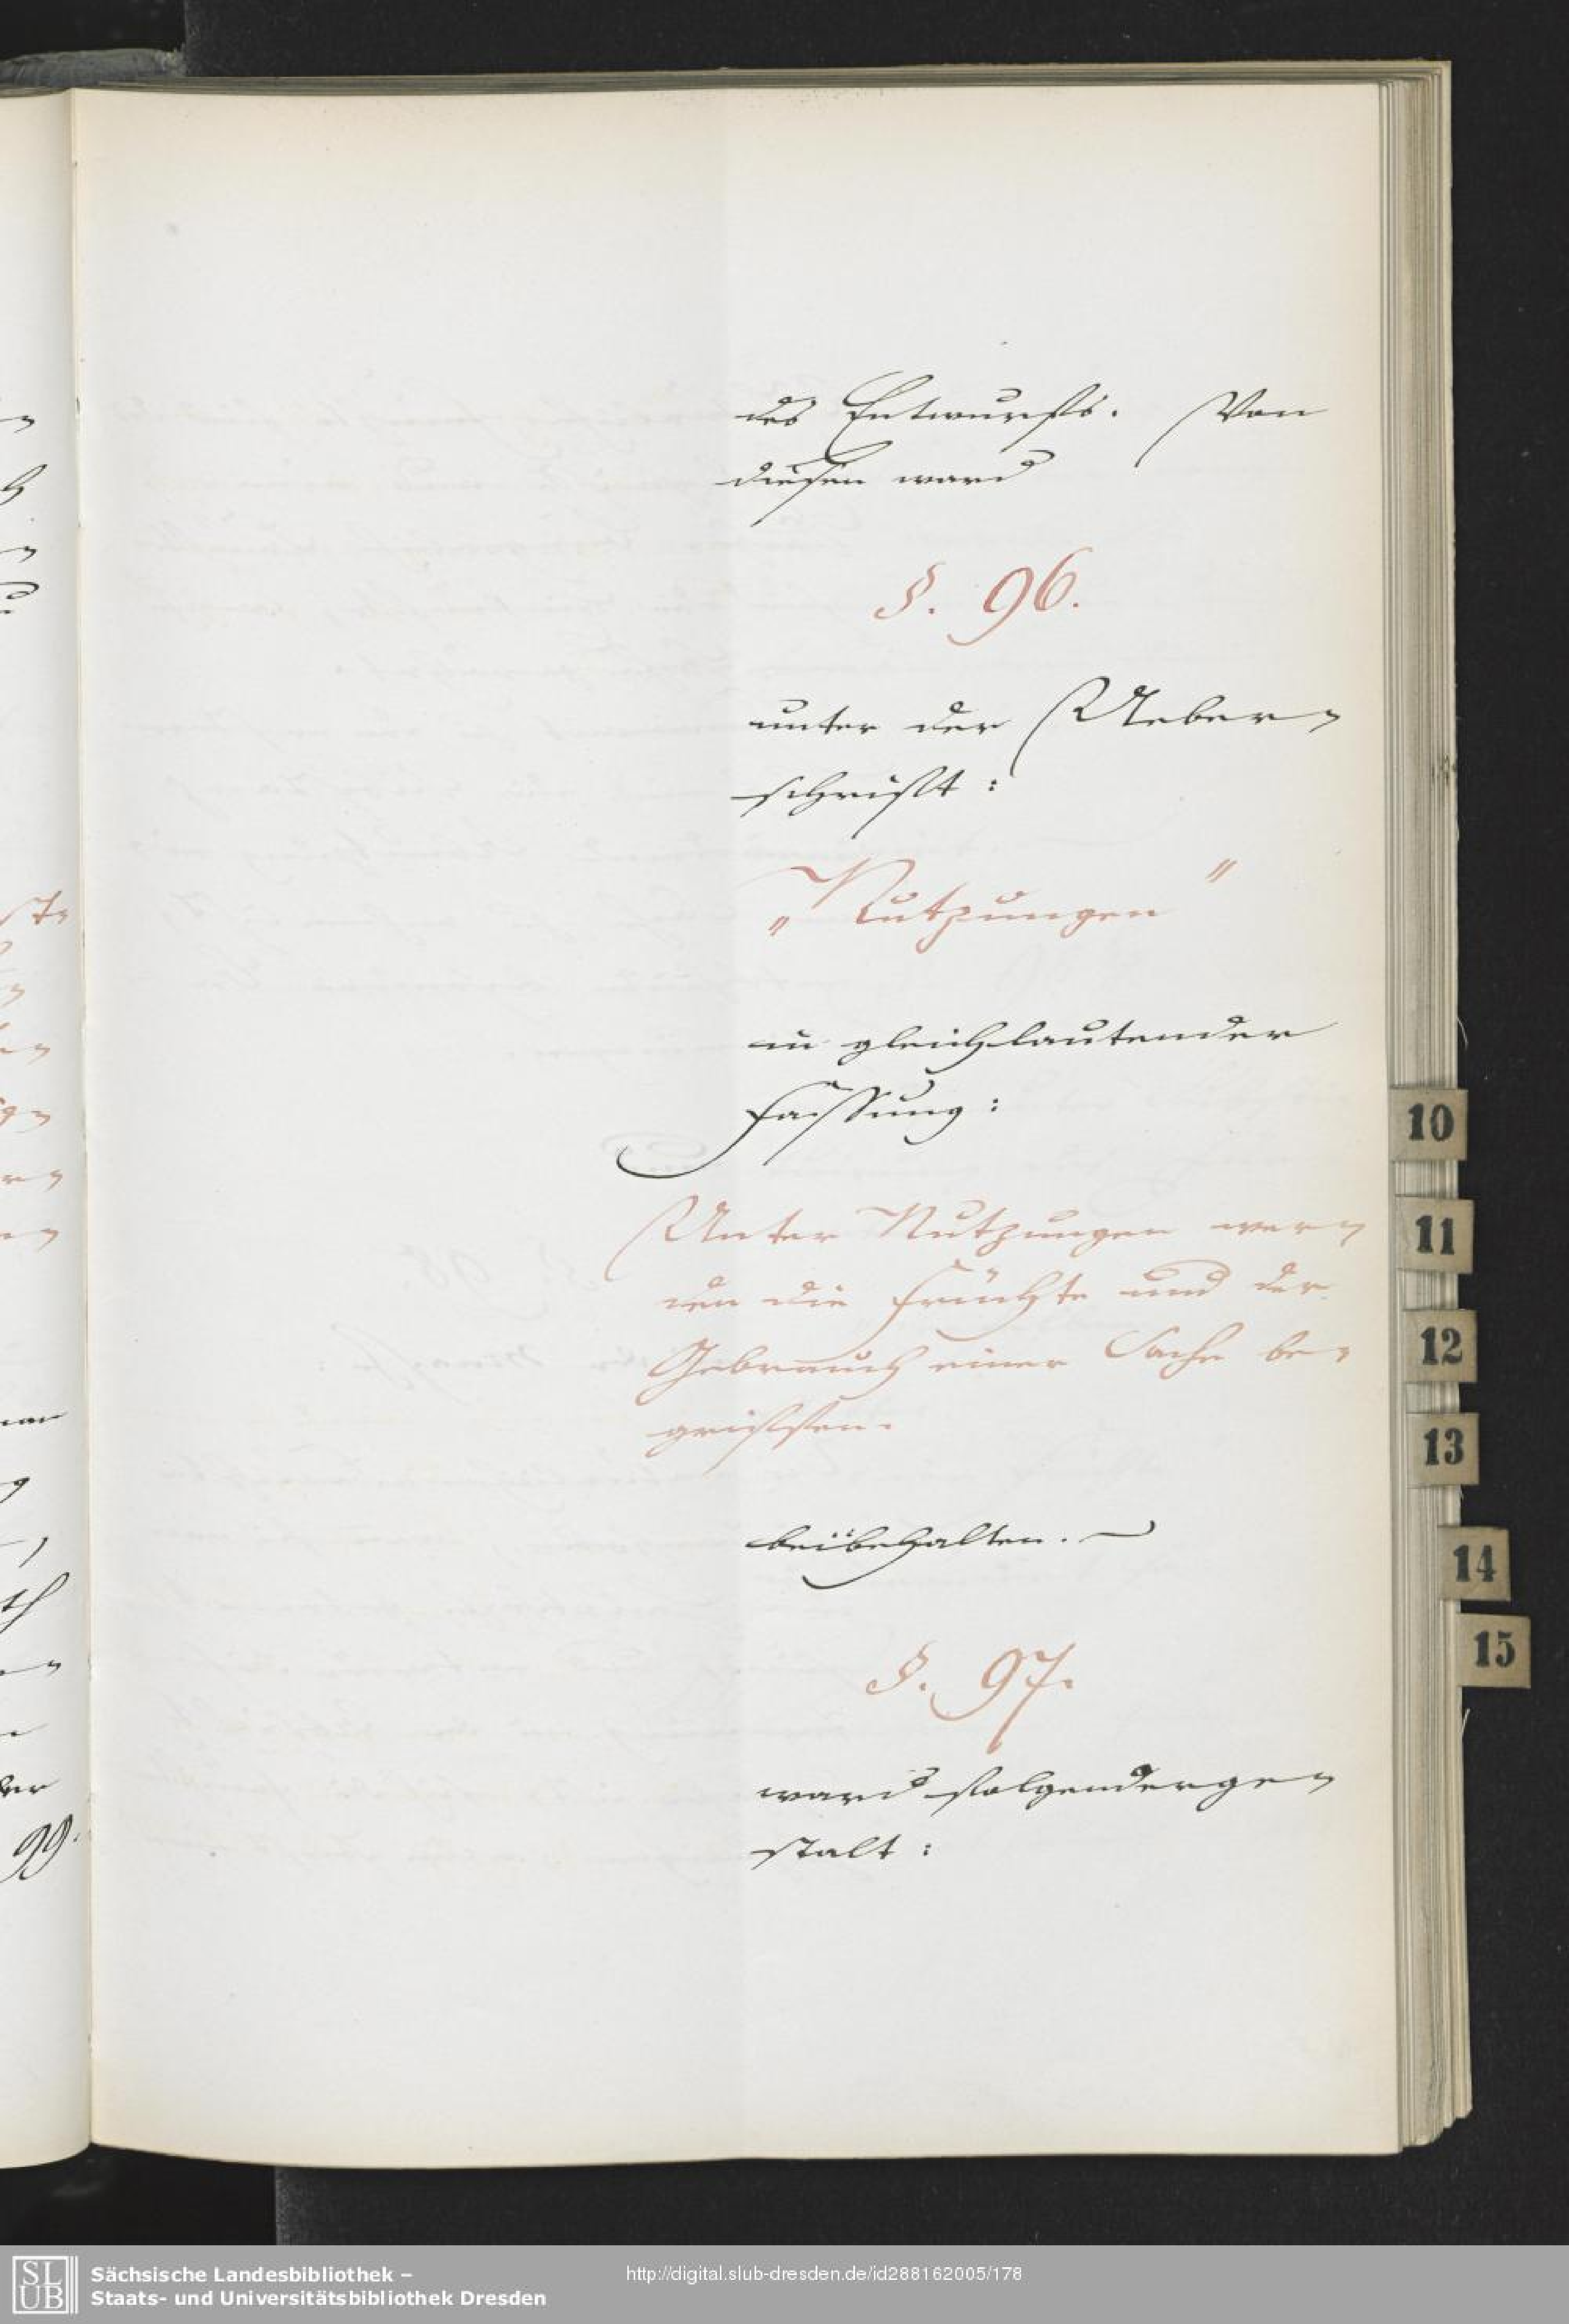 des Entwurfs. Von
diesen ward
§. 96.
unter der Ueber-
schrift:
„Nutzungen"
in gleichlautender
Fassung:
Unter Nutzungen wer-
den die Früchte und der
Gebrauch einer Sache be-
griffen.
beibehalten. —
§. 97.
ward folgenderge-
stalt:
99.
10
11
12
13
14
15
SLUB
Sächsische Landesbibliothek –
Staats- und Universitätsbibliothek Dresden
http://digital.slub-dresden.de/id288162005/178